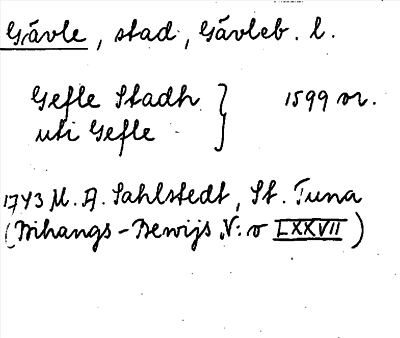 Gävle, stad, Gävleb. l.
Gefle Stadh } 1599 or.
uti Gefle
1743 M. A. Sahlstedt, St. Tuna
(Bihangs-Bewijs N:o LXXVII)